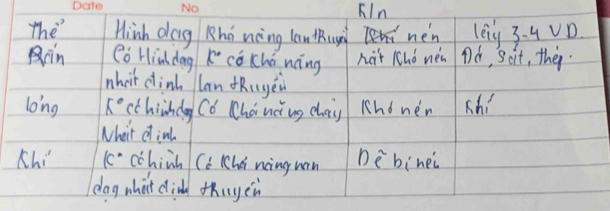 Date No
K/n
Thể Hình dạng Khả năng lan truyền nén lấy 3-4 VD
Rắn Có Hình dạng K° có khả năng rất khó nén Đá, sắt, thép.
nhất định lan truyền
lỏng K° có hình dạng Có khả năng chảy Khó nén Khí
Nhất định
Khí K° có hình Có khả năng nan Dễ bị nén
dạg nhất định truyền